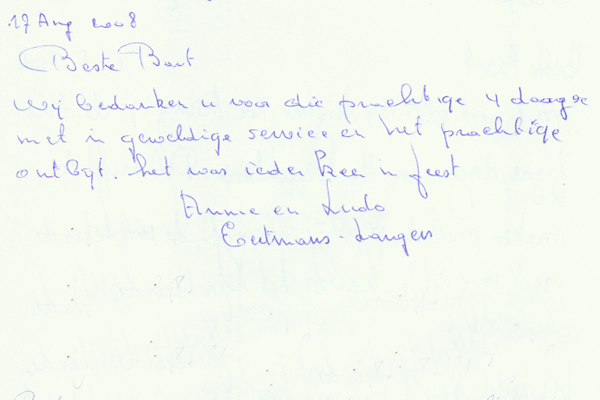 17 Aug 2008
Beste Bart
Wij bedanken u voor die prachtige 4 daagse
met 'n geweldige service en het prachtige
ontbijt. het was ieder keer 'n feest
Annie en Ludo
Eectmans - Langens